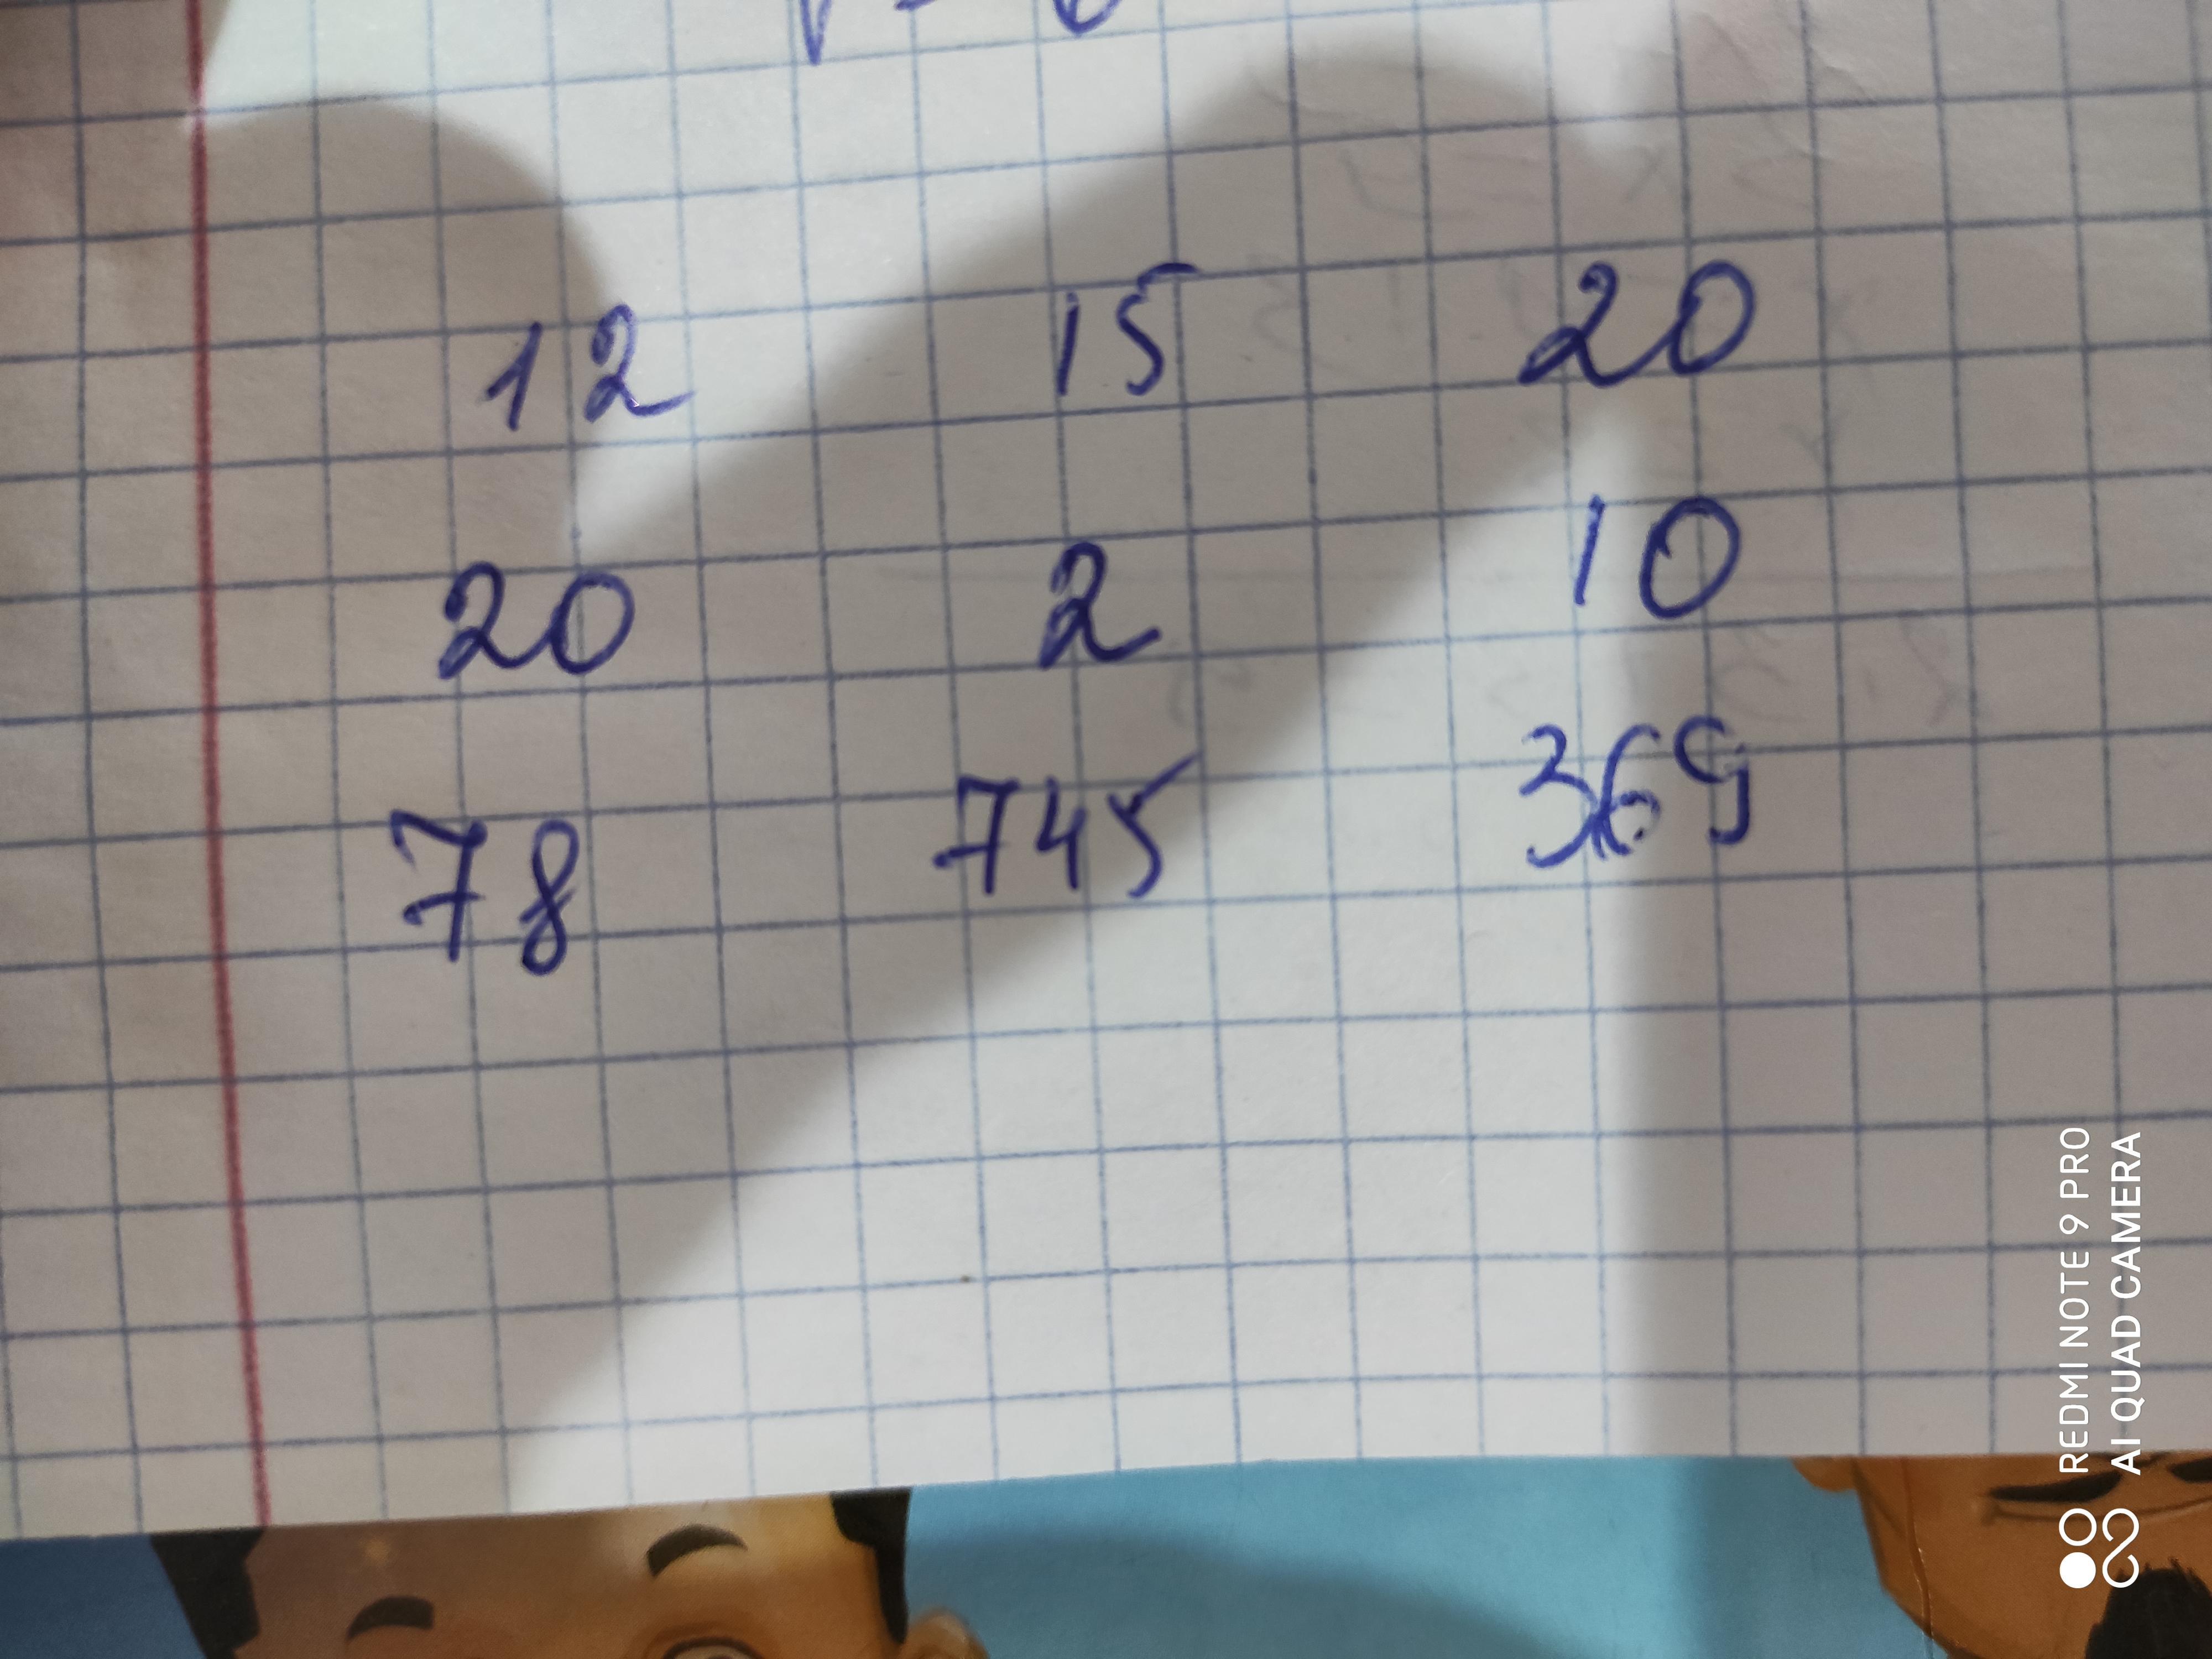 12 15 20
20 2 10
78 745 369
REDMI NOTE 9 PRO
AI QUAD CAMERA